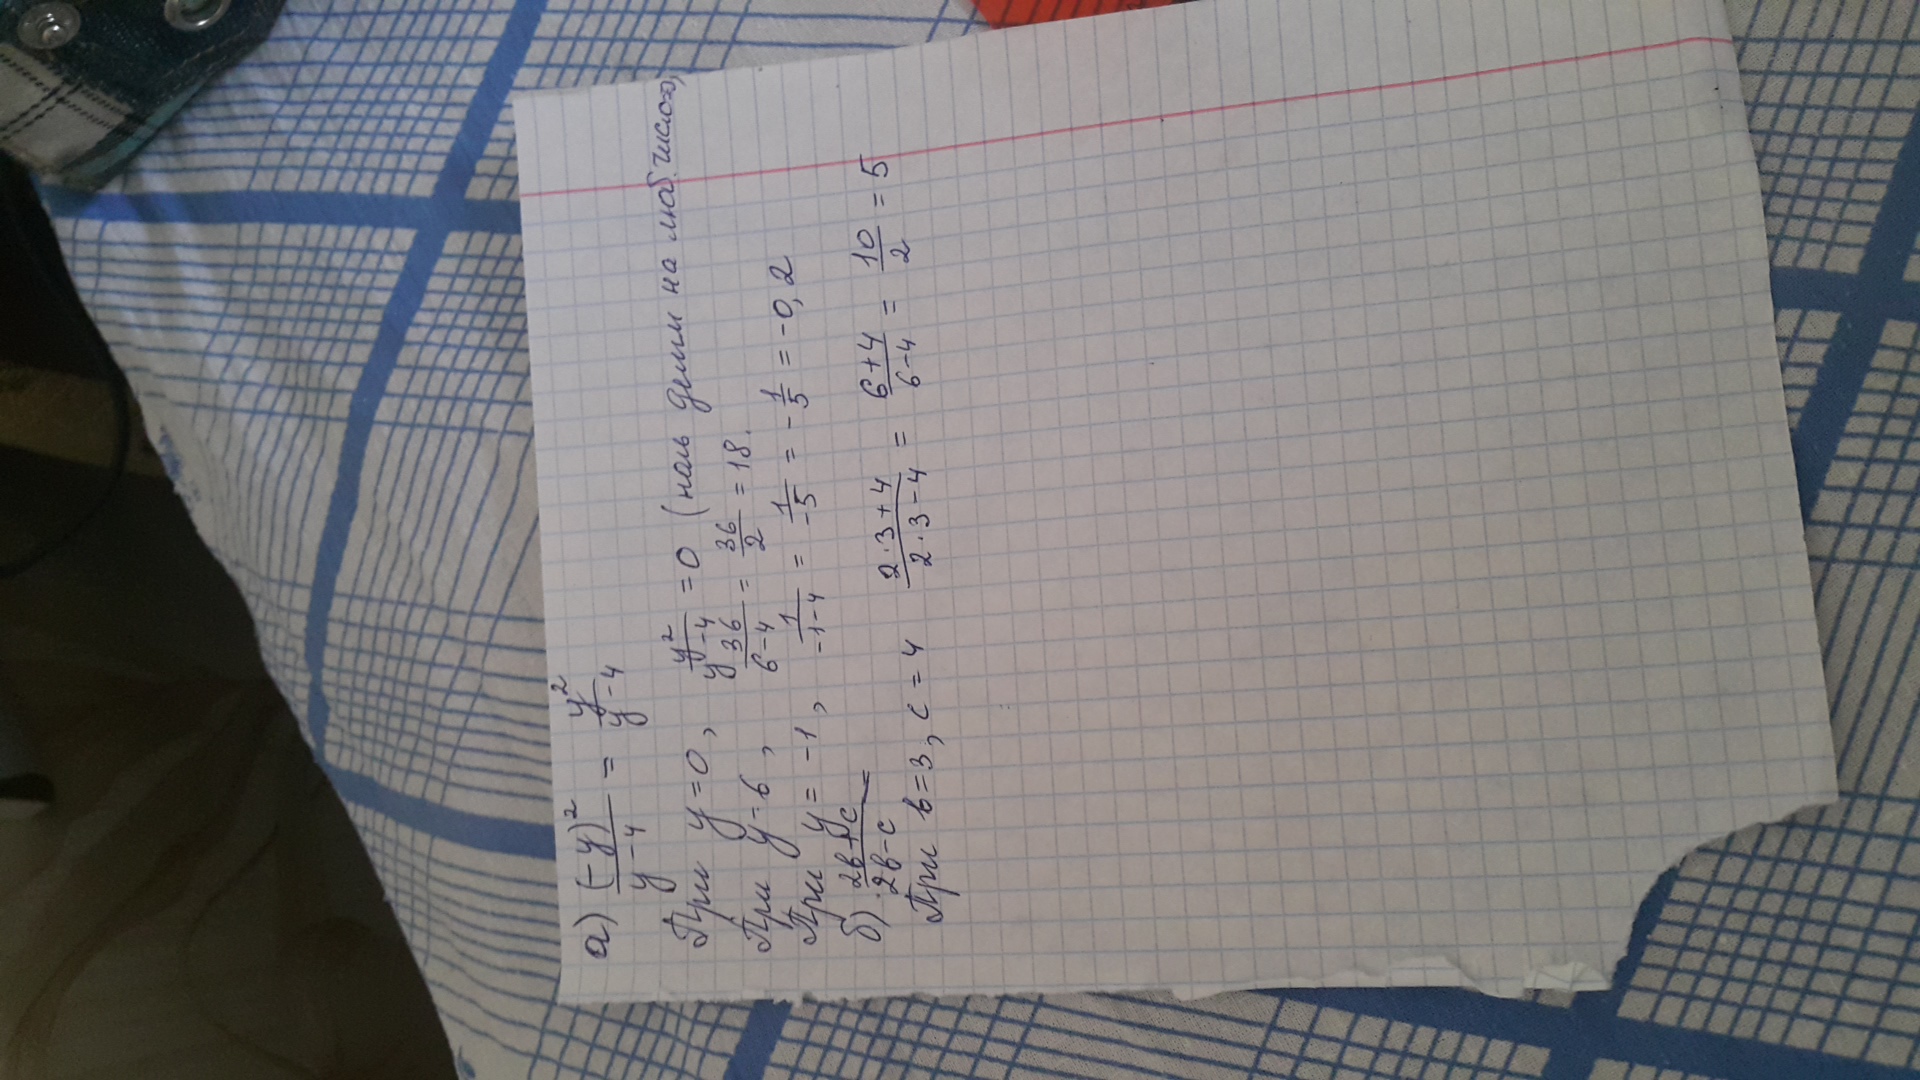 а) (-y)²/y-4 = y²/y-4
При y=0, y²/y-4 = 0 (ноль делим на люб. число,
При y=6, 36/6-4 = 36/2 = 18.
При y=-1, 1/-1-4 = 1/-5 = -1/5 = -0,2
б) 2в+с/2в-с
При в=3, с=4 2·3+4/2·3-4 = 6+4/6-4 = 10/2 = 5